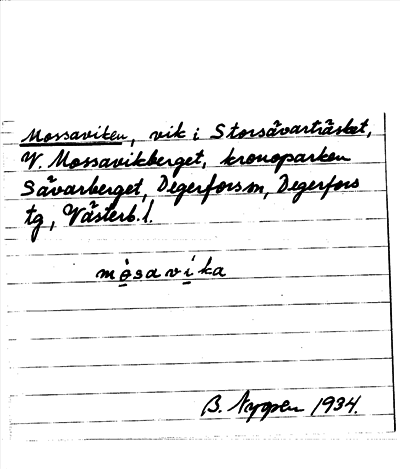 Mossaviken, vik i Storsävarträsket,
V. Mossavikberget, kronoparken
Sävarberget, Degerfors sn, Degerfors
tg, Västerb. l.
mòsavika
B. Nygren 1934.